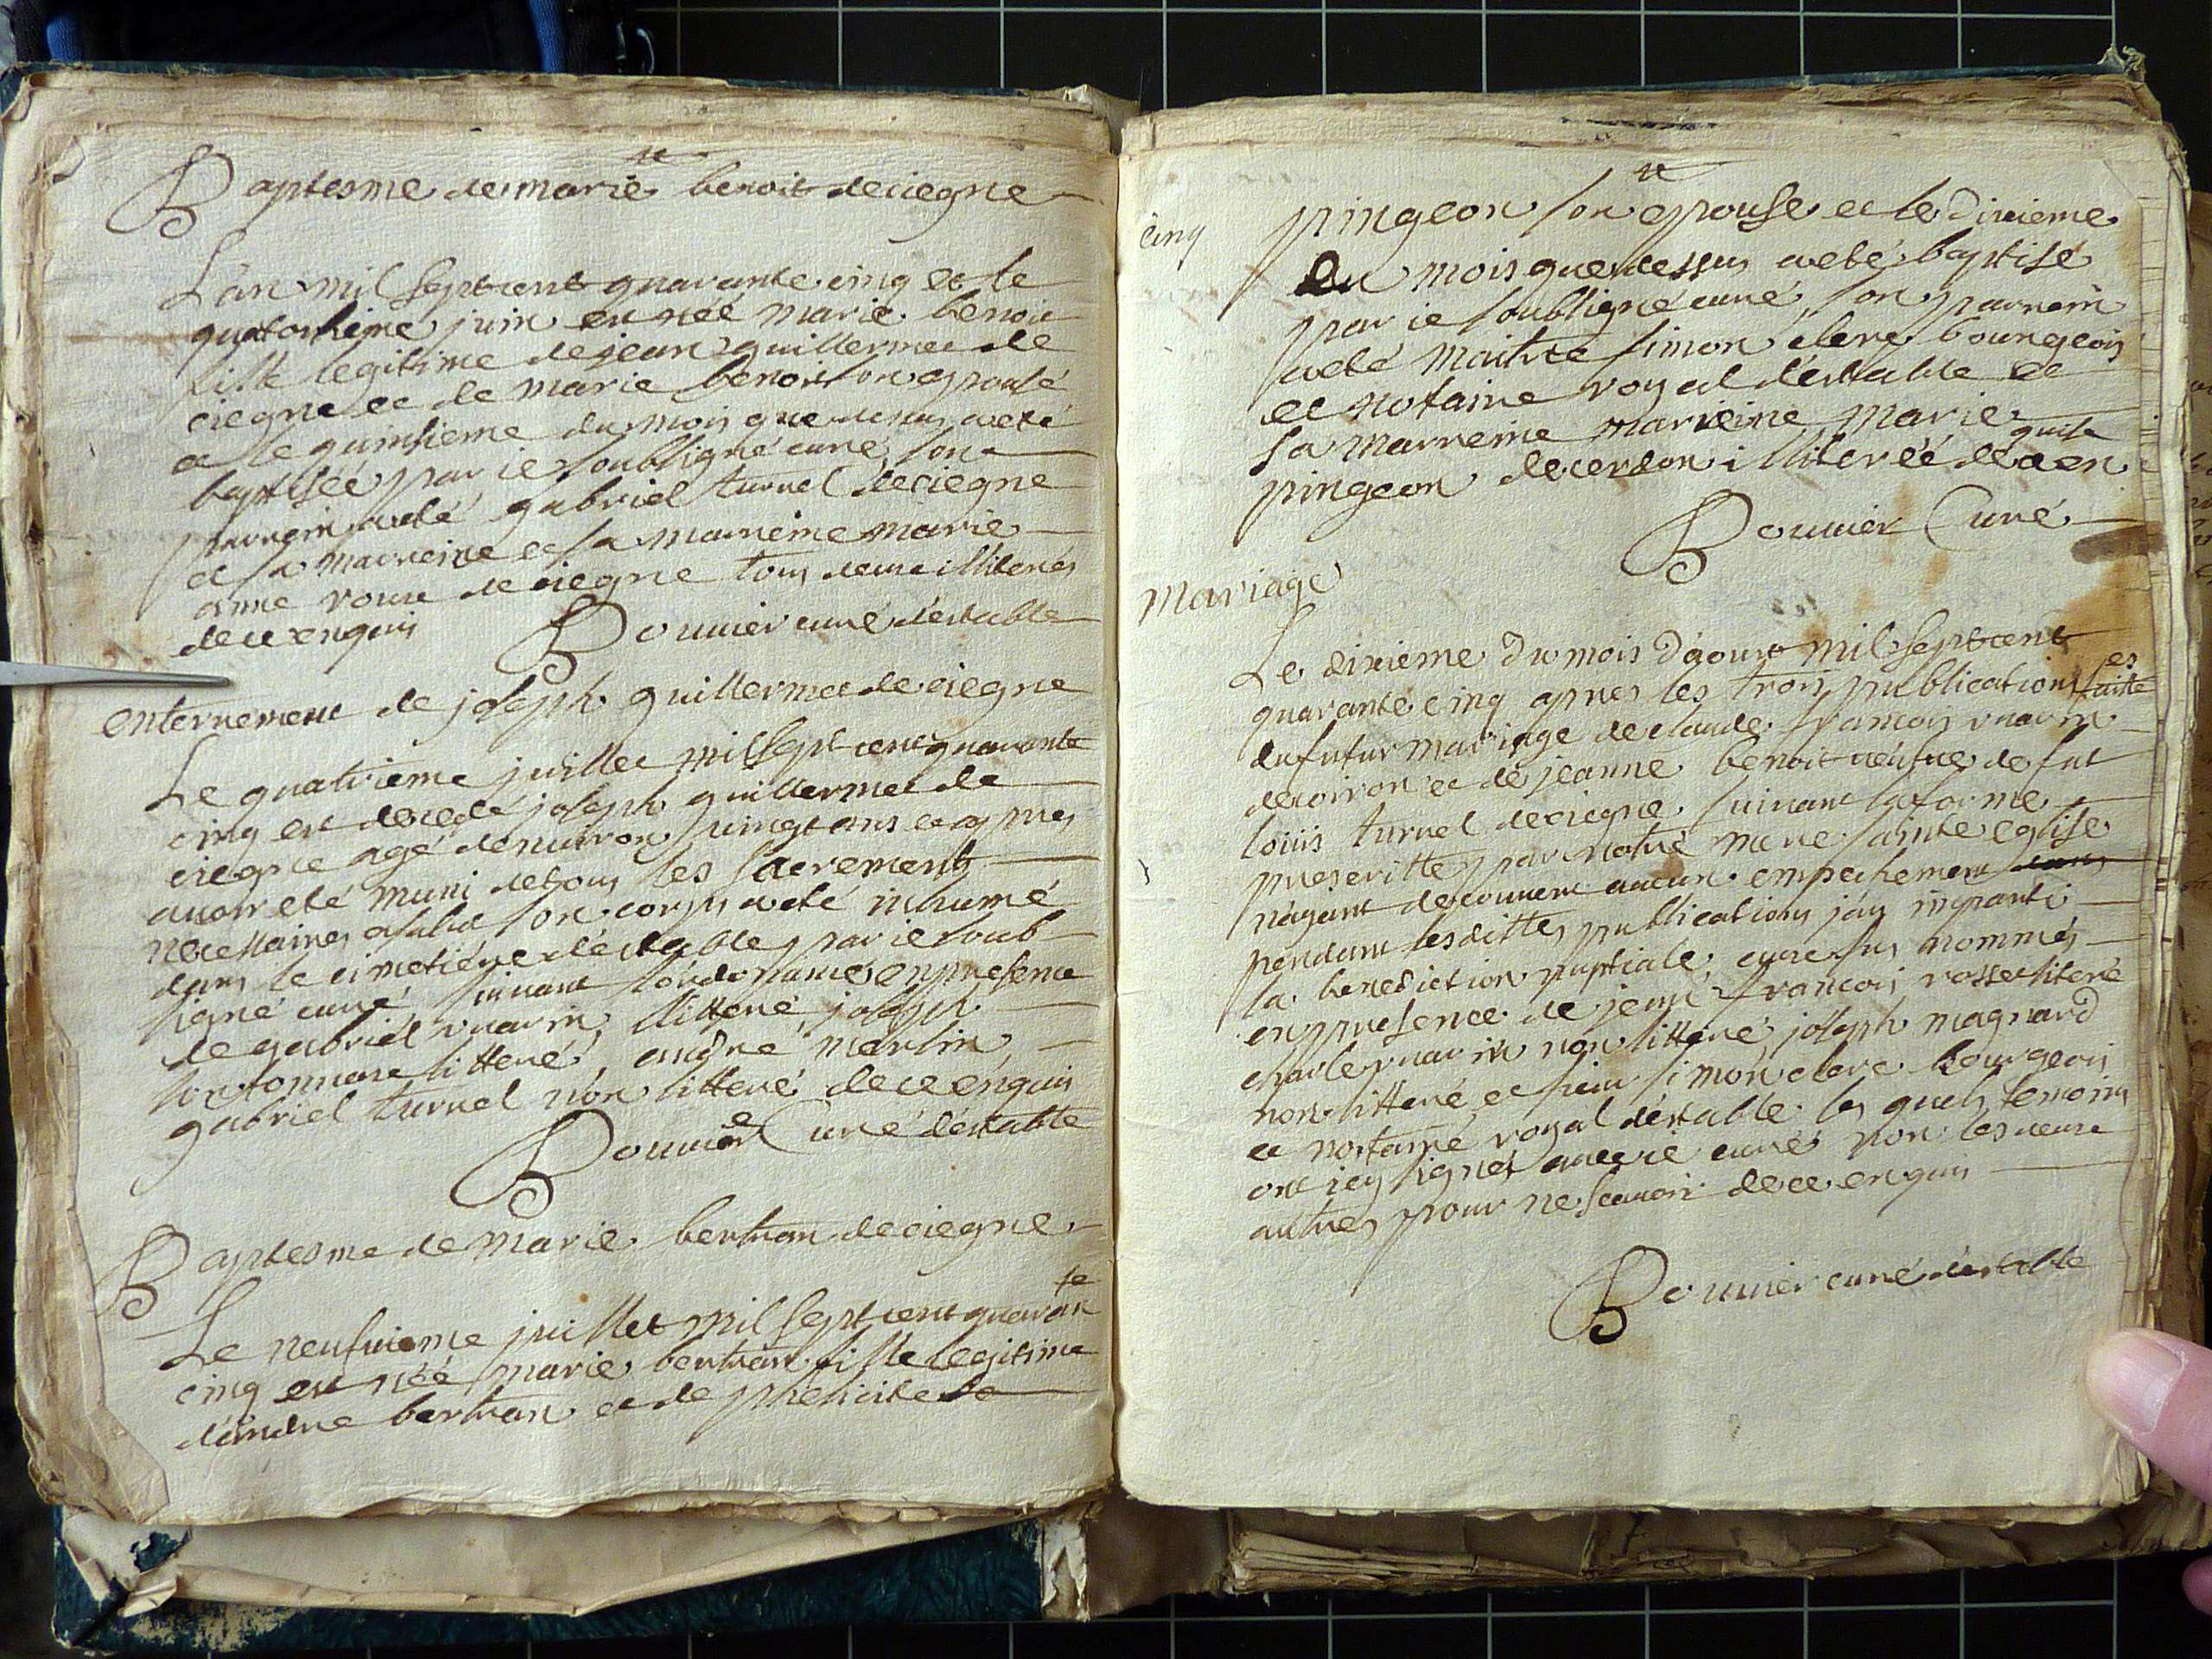 Baptesme de marie benoit deciegne
L'an mil sept cent quarante cinq et le
quatorhieme juin est néé marie benoit
fille legitime de jean guillermet de
ciegne et de marie benoit son epouse
et le quinsieme du mois que dessus a eté
baptiséé par ie soubsigné curé, son
parrein a eté gabriel turnel deciegne
et sa marreine et sa marreine marie
anne roux de ciegne tous deux illiterés
de ce enquis Bouuier curé d'estable
enterrement de joseph guillermet de ciegne
Le quatrieme juillet mil sept cent quarante
cinq est decedé joseph guillermet de
ciegne agé denuiron vingt ans et apres
auoir eté muni de tous les sacrements
necessaires a salut son corps a eté inhumé
dans le cimetiére d'estable par ie soub
signé curé, suiuant l'ordonance en presence
de gabriel vuarin, litteré, joseph
litteré, andré merlin,
gabriel turnel non litteré de ce enquis
Bouuier Curé d'estable
Baptesme de marie bertran deciegne
Le neufuieme juillet mil sept cent quaran
te
cinq est néé marie bertran fille legitime
d'andre bertran et de phelicite
cinq
pingeon son epouse et le dixieme
du mois que dessus a eté baptisé
par ie soubsigné curé, son parrein
a eté maitre simon clerc bourgeois
et notaire royal d'estable et
sa marreine marreine marie
pingeon decerdon illiteréé de ce en
quise
Bouuier Curé
mariage
Le dixieme du mois d'aoust mil sept cent
quarante cinq apres les trois publications faite
es
du futur mariage de claude francois vuarin
decoiron et de jeanne benoit véufue de fut
loüis turnel deciegne, suiuant la forme
prescritte par notre mere sainte eglise
n'ayant decouuert aucun empechement
pendant lesdittes publications j'ay imparti
la benediction nuptiale, aux sus nommés
en presence de jean francois rosset literé
charle vuarin non litteré, joseph magnard
non litteré, et sieur simon clerc bourgeois
et nortaire royal d'estable les quels temoins
ont icy signés auec ie curé non les deux
autres pour ne scauoir de ce enquis
Bouuier curé d'estable